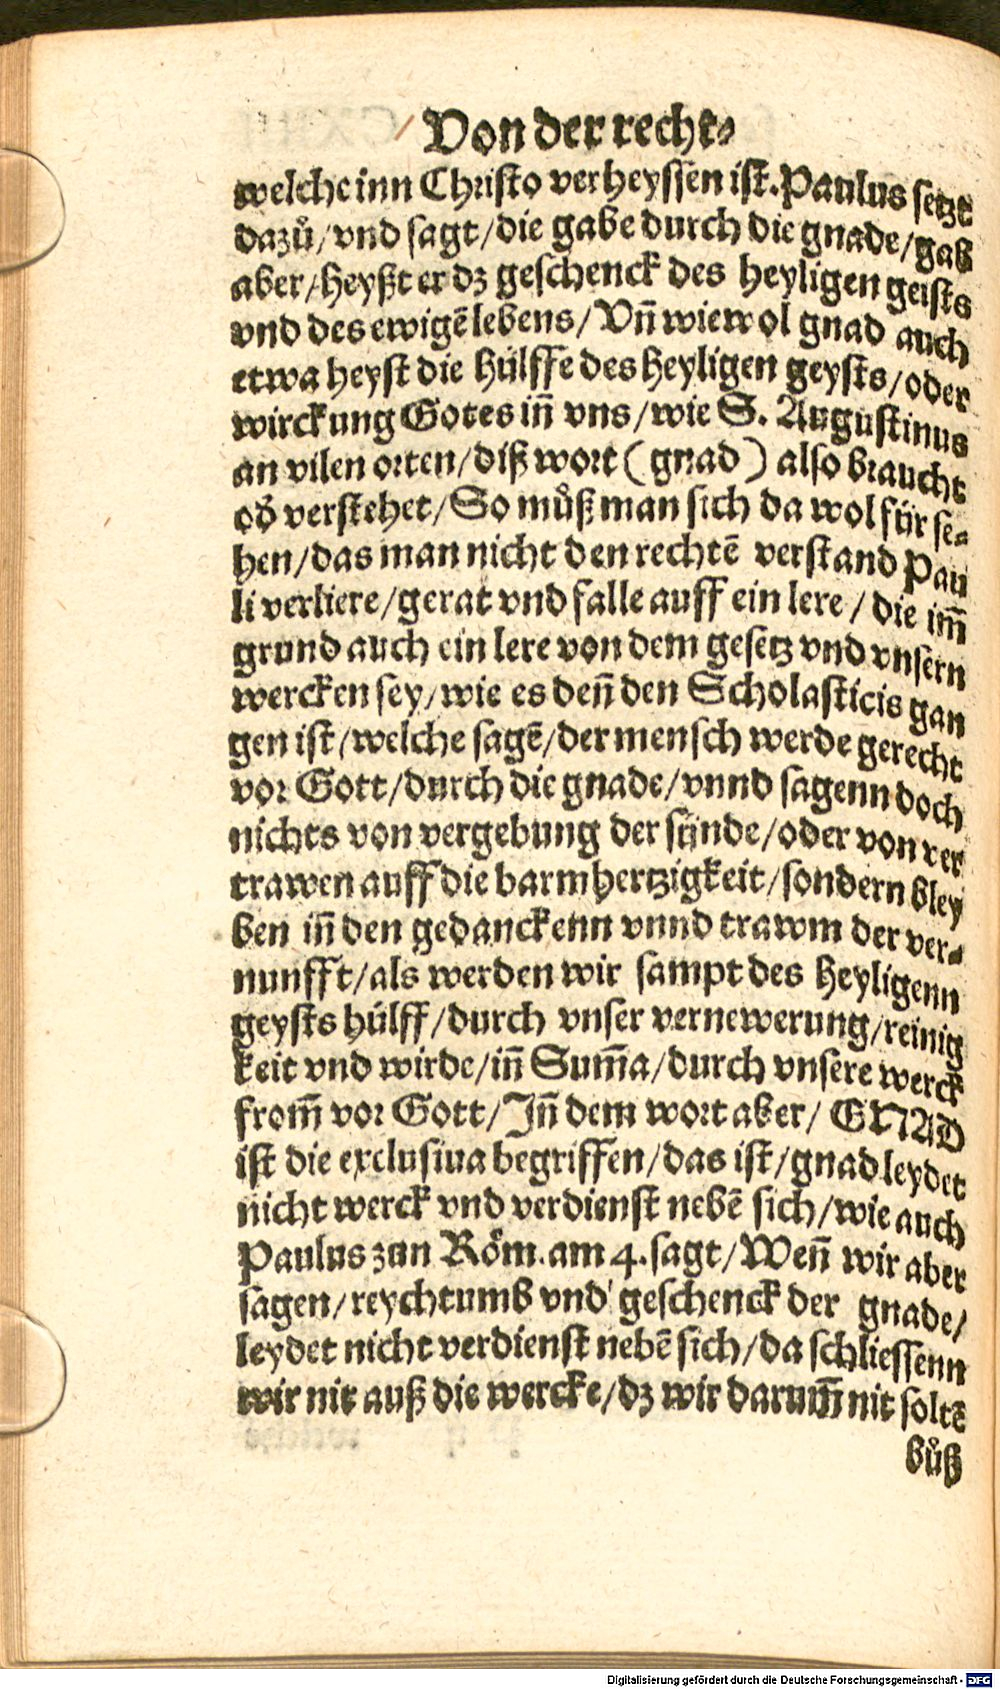 Von der recht⸗
welche inn Christo verheyssen ist. Paulus setzt
dazů/ vnd sagt/ die gabe durch die gnade/ gab
aber/ heyßt er dz geschenck des heyligen geists
vnd des ewigē lebens/ Vn̄ wiewol gnad auch
etwa heyst die hülffe des heyligen geysts/ oder
wirckung Gotes in̄ vns/ wie S. Augustinus
an vilen orten/ diß wort (gnad) also braucht
od̓ verstehet/ So můß man sich da wol für se⸗
hen/ das man nicht den rechtē verstand Pau
li verliere/ gerat vnd falle auff ein lere/ die im̄
grund auch ein lere von dem gesetz vnd vnsern
wercken sey/ wie es den̄ den Scholasticis gan
gen ist/ welche sagē/ der mensch werde gerecht
vor Gott/ durch die gnade/ vnnd sagenn doch
nichts von vergebung der sünde/ oder von ver
trawen auff die barmhertzigkeit/ sondern bley
ben in̄ den gedanckenn vnnd trawm der ver⸗
nunfft/ als werden wir sampt des heyligenn
geysts hülff/ durch vnser vernewerung/ reinig
keit vnd wirde/ in̄ Sum̄a/ durch vnsere werck
from̄ vor Gott/ Jn̄ dem wort aber/ GNAD
ist die exclusiua begriffen/ das ist/ gnad leydet
nicht werck vnd verdienst nebē sich/ wie auch
Paulus zun Röm. am 4. sagt/ Wen̄ wir aber
sagen/ reychtumb vnd geschenck der gnade/
leydet nicht verdienst nebē sich/ da schliessenn
wir nit auß die wercke/ dz wir darum̄ nit soltē
bůß
Digitalisierung gefördert durch die Deutsche Forschungsgemeinschaft - DFG